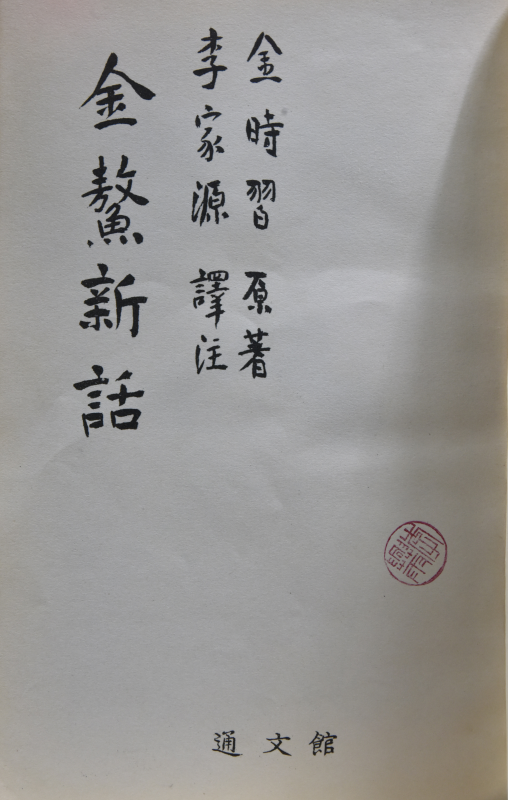 金時習 原著
李家源 譯注
金鰲新話
通文館